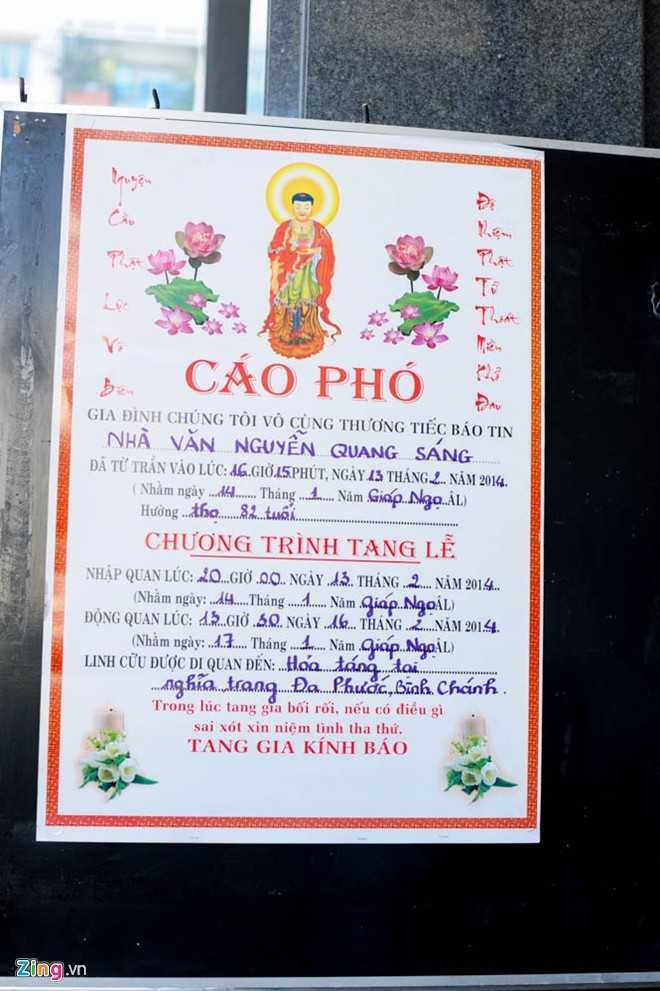 Nguyện
Cầu
Phật
Lực
Vô
Biên
Độ
Niệm
Phật
Tử
Thoát
Miền
Khổ
Đau
CÁO PHÓ
GIA ĐÌNH CHÚNG TÔI VÔ CÙNG THƯƠNG TIẾC BÁO TIN
NHÀ VĂN NGUYỄN QUANG SÁNG
ĐÃ TỪ TRẦN VÀO LÚC: 16 GIỜ 15 PHÚT, NGÀY 13 THÁNG 2 NĂM 2014.
( Nhằm ngày 14 Tháng 1 Năm Giáp Ngọ ÂL)
Hưởng thọ 82 tuổi
CHƯƠNG TRÌNH TANG LỄ
NHẬP QUAN LÚC: 20 GIỜ 00 NGÀY 13 THÁNG 2 NĂM 2014
(Nhằm ngày: 14 Tháng 1 Năm Giáp Ngọ ÂL)
ĐỘNG QUAN LÚC: 13 GIỜ 30 NGÀY 16 THÁNG 2 NĂM 2014
(Nhằm ngày: 17 Tháng 1 Năm Giáp Ngọ ÂL)
LINH CỮU ĐƯỢC DI QUAN ĐẾN: Hỏa táng tại
nghĩa trang Đa Phước, Bình Chánh.
Trong lúc tang gia bối rối, nếu có điều gì
sai xót xin niệm tình tha thứ.
TANG GIA KÍNH BÁO
Zing.vn